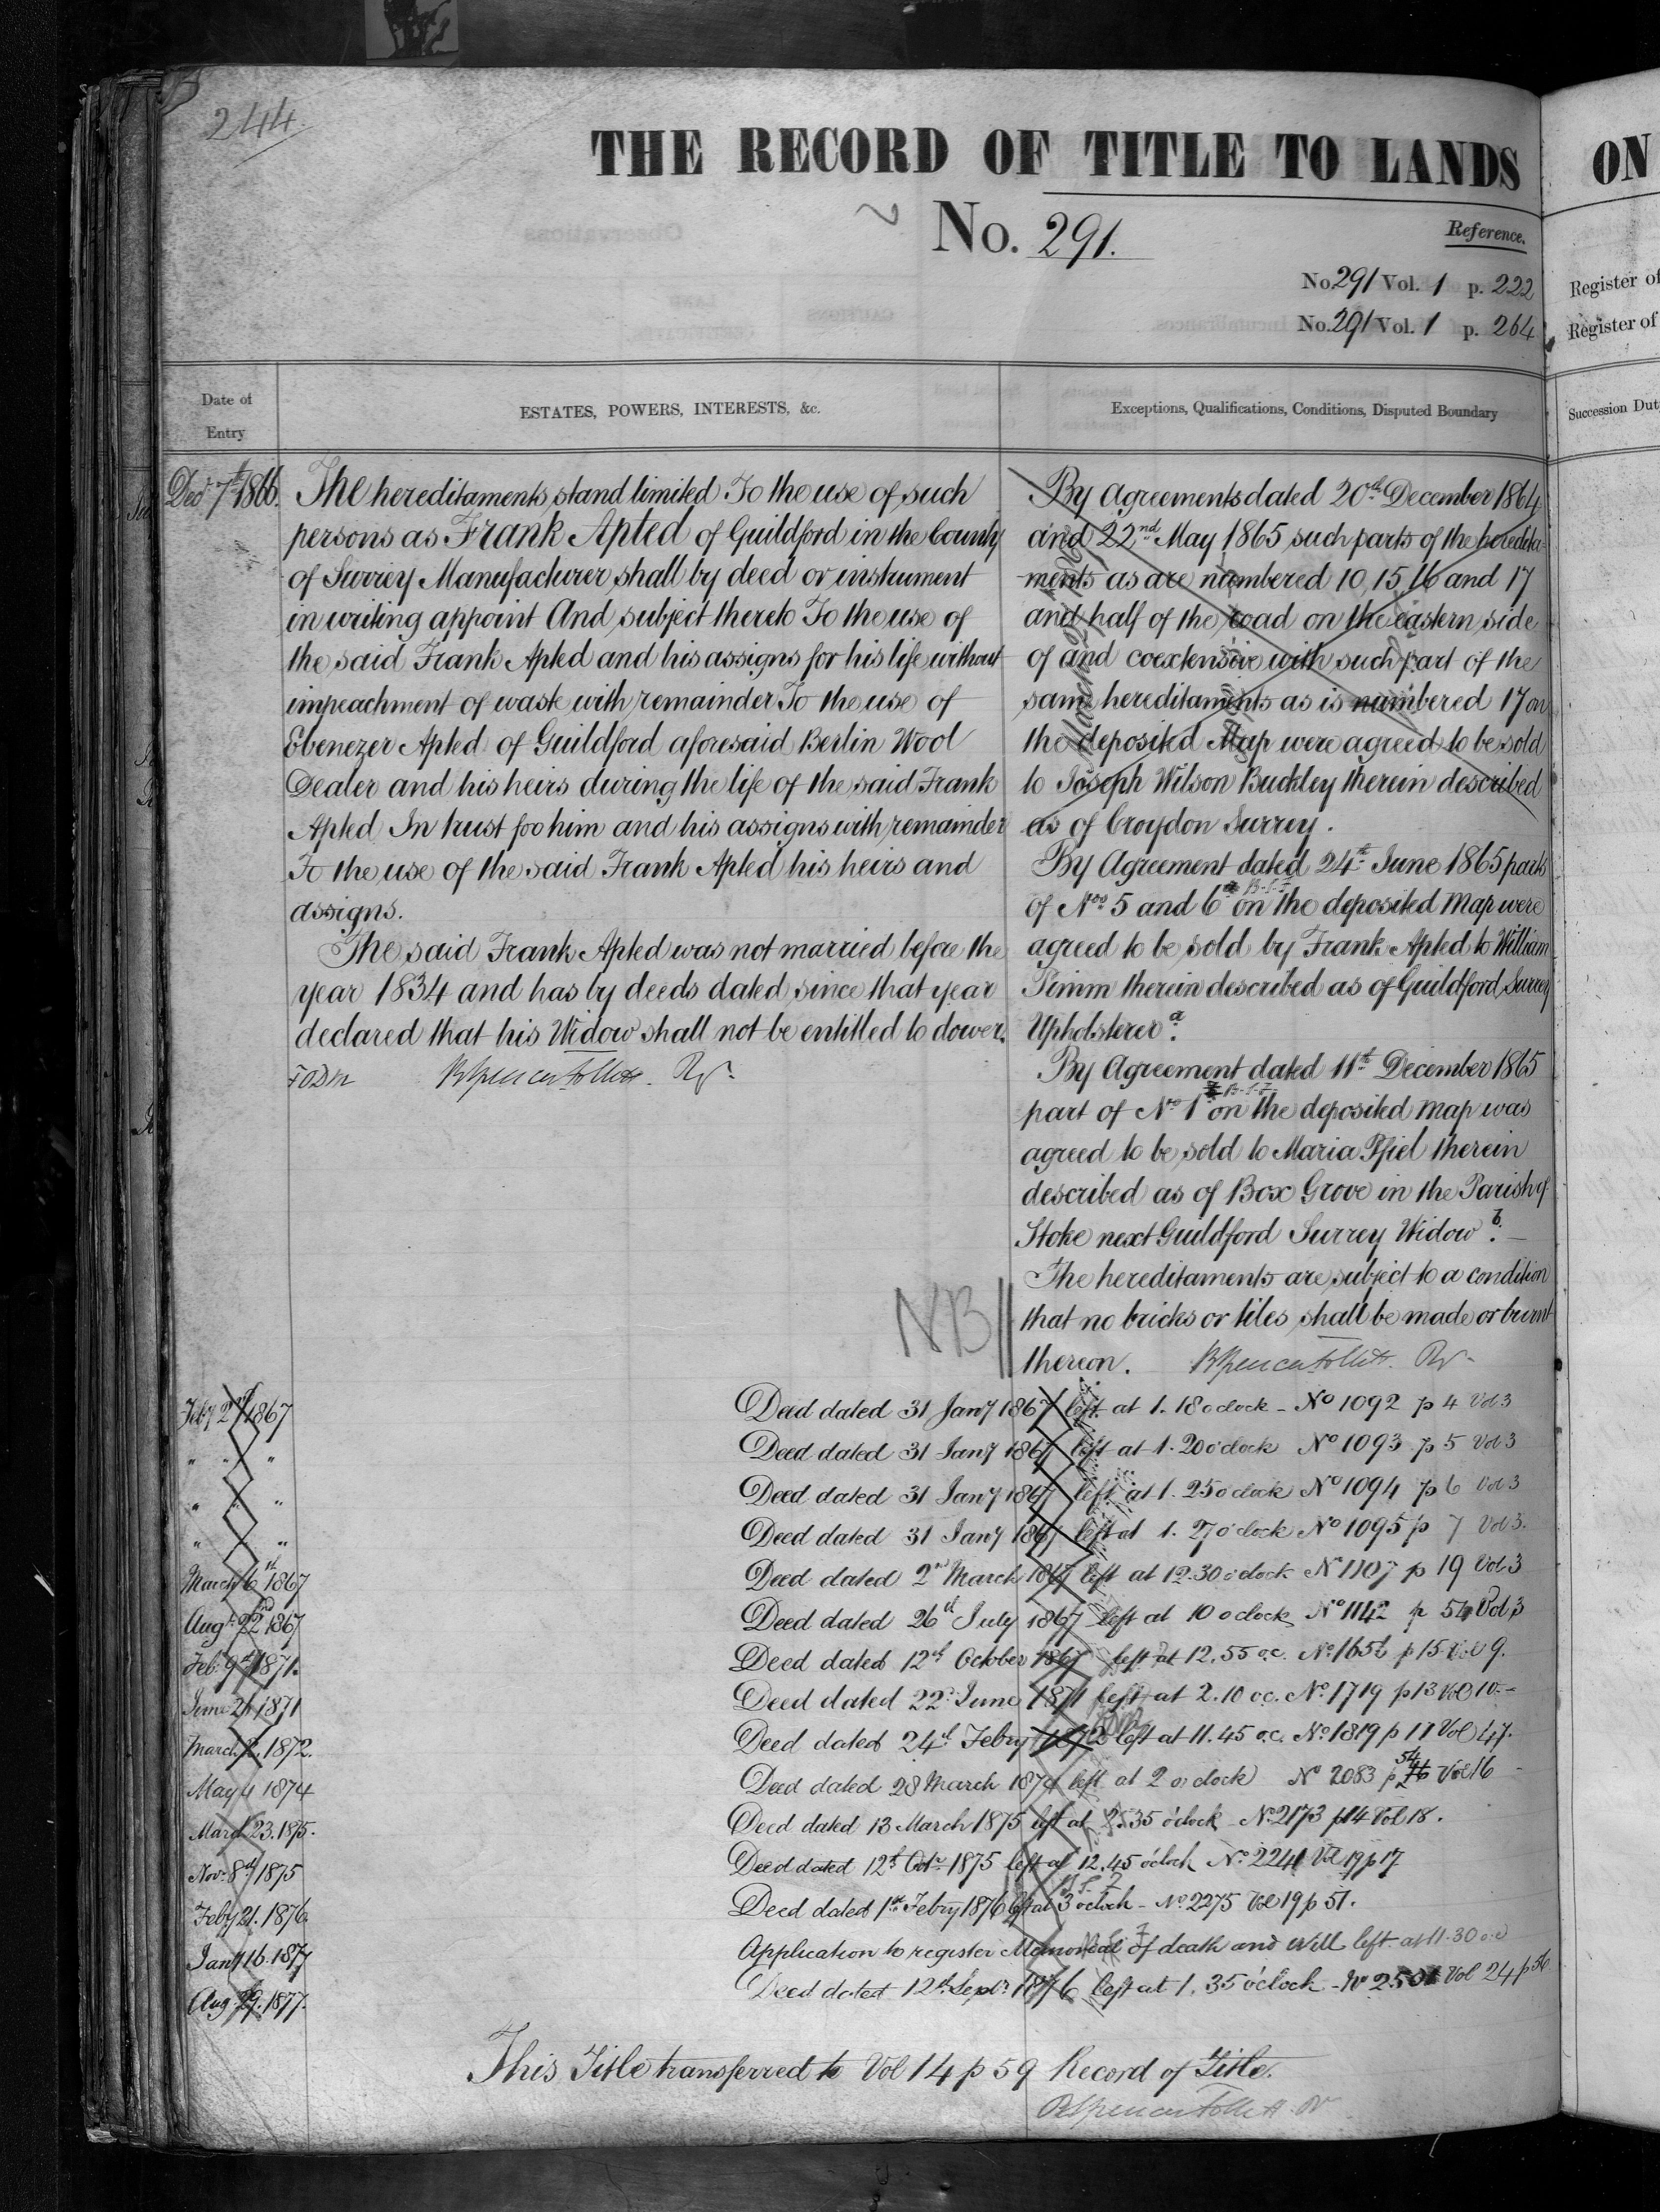 244.
THE RECORD OF TITLE TO LANDS
ON
No. 291.
Reference.
No. 291 Vol. 1 p. 222
No. 291 Vol. 1 p. 264
Register of
Register of
Date of
Entry
ESTATES, POWERS, INTERESTS, &c.
Exceptions, Qualifications, Conditions, Disputed Boundary
Succession Dut
Decr 7th 1866.
The hereditaments stand limited To the use of such
persons as Frank Apted of Guildford in the County
of Surrey Manufacturer shall by deed or instrument
in writing appoint And subject thereto To the use of
the said Frank Apted and his assigns for his life without
impeachment of waste with remainder To the use of
Ebenezer Apted of Guildford aforesaid Berlin Wool
Dealer and his heirs during the life of the said Frank
Apted In trust for him and his assigns with remainder
To the use of the said Frank Apted his heirs and
assigns.
The said Frank Apted was not married before the
year 1834 and has by deeds dated since that year
declared that his Widow shall not be entitled to dower.
BSpencer Follett. Rr.
By Agreements dated 20th December 1864
and 22nd May 1865 such parts of the heredita-
ments as are numbered 10, 15, 16 and 17
and half of the road on the eastern side
of and coextensive with such part of the
same hereditaments as is numbered 17 on
the deposited Map were agreed to be sold
to Joseph Wilson Buckley therein described
as of Croydon Surrey.
By Agreement dated 24th June 1865 parts
of Nos. 5 and 6 a B.S.F. on the deposited Map were
agreed to be sold by Frank Apted to William
Timm therein described as of Guildford Surrey
Upholsterer a.
By Agreement dated 11th December 1865
part of No 1 b B.S.F. on the deposited Map was
agreed to be sold to Maria Pfiel therein
described as of Box Grove in the Parish of
Stoke next Guildford Surrey Widow b.
The hereditaments are subject to a condition
NB
that no bricks or tiles shall be made or burnt
thereon. BSpencer Follett. Rr.
Feby 2nd 1867 Deed dated 31 Jany 1867 left at 1.18 oclock - No 1092 p 4 Vol 3
" " " Deed dated 31 Jany 1867 left at 1.20 o'clock No 1093 p 5 Vol 3
" " " Deed dated 31 Jany 1867 left at 1.25 o'clock No 1094 p 6 Vol 3
" " " Deed dated 31 Jany 1867 left at 1.27 o'clock No 1095 p 7 Vol 3.
March 6th 1867 Deed dated 2nd March 1867 left at 12.30 o'clock No 1107 p 19 Vol 3
Augt 22nd 1867 Deed dated 26th July 1867 left at 10 oclock No 1142 p 54 Vol 3
Feb. 9th 1871. Deed dated 12th October 1867 left at 12.55 o.c. No 1656 p 15 Vol 9.
June 26 1871 Deed dated 22d June 1871 left at 2.10 o.c. No. 1719 p 13 Vol 10.-
March 2. 1872. Deed dated 24th Febry 1872 left at 11.45 o.c. No. 1819 p 17 Vol
May 4 1874 Deed dated 28 March 1874 left at 2 o'clock No 2083 p 54 Vol 16
March 23. 1875. Deed dated 13 March 1875 left at 2.35 o'clock No. 2173 p 14 Vol 18.
Novr 8th 1875 Deed dated 12th Octr 1875 left at 12.45 o'clock No. 2241 Vol 19 p 17
Feby 21. 1876. Deed dated 1st Febry 1876 left at 3 o'clock - No. 2275 Vol 19 p 51.
Jany 16. 1877 Application to register Memorial of death and Will left at 11.30 o.c
Aug. 29. 1877. Deed dated 12th Septr 1876 left at 1.35 o'clock - No 2501 Vol 24 p 56
This Title transferred to Vol 14 p 59 Record of Title.
BSpencer Follett. Rr